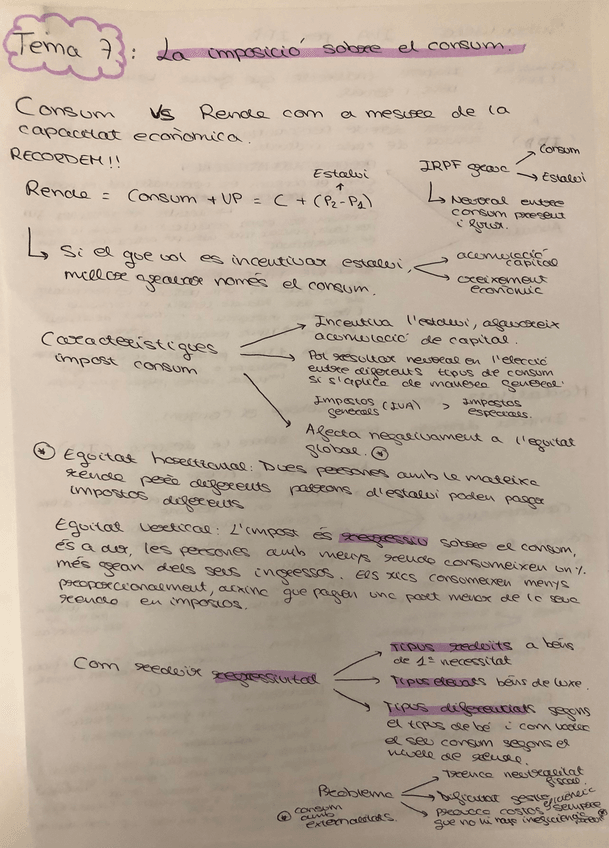 Tema 7: La imposició sobre el consum.
Consum vs Renda com a mesura de la
capacitat econòmica.
RECORDEM!!
Estalvi
Renda = Consum + UP = C + (P2-P1)
IRPF grava → Consum
→ Estalvi
↳ Neutral entre
consum present
i futur.
↳ Si el que vol es incentivar estalvi,
millor gravar només el consum.
→ acumulació
capital
→ creixement
econòmic
Característiques
impost consum
→ Incentiva l'estalvi, afavoreix
acumulació de capital.
→ Pot resultar neutral en l'elecció
entre diferents tipus de consum
si s'aplica de manera general.
Impostos
generals (IVA) > Impostos
especials.
→ Afecta negativament a l'equitat
global. *
* Equitat horitzontal: Dues persones amb la mateixa
renda però diferents patrons d'estalvi poden pagar
impostos diferents
Equitat vertical: L'impost és regressiu sobre el consum,
és a dir, les persones amb menys renda consumeixen un %
més gran dels seus ingressos. Els rics consumeixen menys
proporcionalment, així que paguen una part menor de la seva
renda en impostos.
Com reduir regressivitat
→ Tipus reduïts a béns
de 1ª necessitat
→ Tipus elevats béns de luxe.
→ Tipus diferencials segons
el tipus de bé i com varia
el seu consum segons el
nivell de renda.
Problema
→ Trenca neutralitat
fiscal.
→ Dificultat gestió
→ Provoca costos sempre
que no hi hagi
* consum
amb
externalitats.